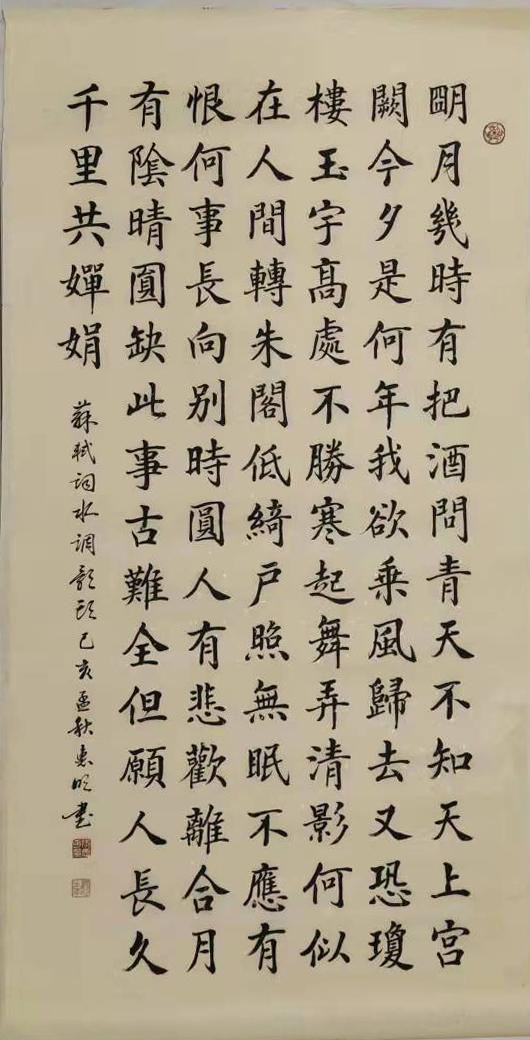 朙月幾時有把酒問青天不知天上宮
闕今夕是何年我欲乘風歸去又恐瓊
樓玉宇髙處不勝寒起舞弄清影何似
在人間轉朱閣低綺户照無眠不應有
恨何事長向别時圓人有悲歡離合月
有陰晴圓缺此事古難全但願人長久
千里共嬋娟
蘇軾詞水調歌頭己亥孟秋惠明书